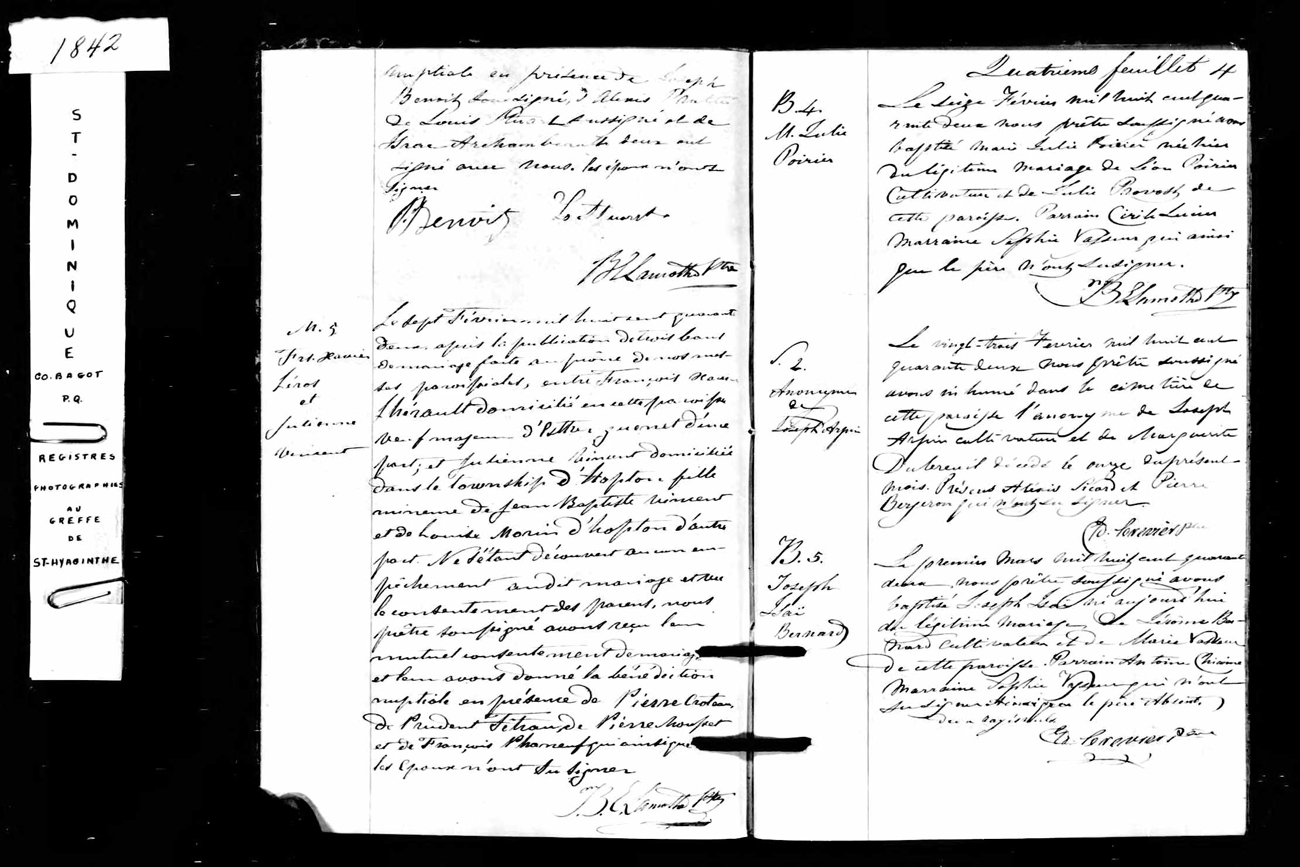 1842
ST-DOMINIQUE
CO. BAGOT
P.Q.
REGISTRES
PHOTOGRAPHIÉS
AU
GREFFE
DE
ST-HYACINTHE
nuptiale en présence de Joseph
Benoit soussigné, d'Alexis
de Louis Huart soussigné et de
Isaac Archambeault deux ont
signé avec nous. les époux n'ont
signer
Benoit Ls Huart
Lamothe Ptre
M. 5
Frs. Xavier
Léros
et
Julienne
Vincent
Le sept Février mil huit cent quarante
deux, après la publication de trois bans
de mariage faite au prône de nos mes-
ses paroissiales, entre François Xavier
Lhérault domicilié en cette paroisse
veuf majeur d'Esther d'une
part; et Julienne Vincent domiciliée
dans le Township d'Hopton fille
mineure de Jean Baptiste Vincent
et de Louise Morin d'hopton d'autre
part. Ne s'étant découvert aucun em-
pêchement audit mariage et vu
le consentement des parens, nous
prêtre soussigné avons reçu leur
mutuel consentement de mariage
et leur avons donné la bénédiction
nuptiale en présence de Pierre Croteau,
de Prudent Tétrau, de Pierre
et de François Phaneuf qui ainsi que
les Epoux n'ont su signer
Lamothe Ptre
Quatrième feuillet 4
B. 4.
M. Julie
Poirier
Le seize Février mil huit cent qua-
rante deux nous prêtre soussigné avons
baptisé Marie Julie Poirier née hier
du légitime mariage de Léon Poirier
Cultivateur et de Julie Provost, de
cette paroisse. Parrain Cirile Lucier
Marraine Sophie Vasseur qui ainsi
que le père n'ont su signer.
Lamothe Ptre
S. 2.
Anonyme
de
Joseph Arpin
Le vingt-trois Fevrier mil huit cent
quarante deux nous prêtre soussigné
avons inhumé dans le cimetière de
cette paroisse l'anonyme de Joseph
Arpin cultivateur et de Marguerite
Dutereuil décédé le onze du présent
mois. Présens Alexis Sicard et Pierre
Bergeron qui n'ont su signer
Crevier ptre
B. 5.
Joseph
Isaï
Bernard
Le premier Mars mil huit cent quarante
deux nous prêtre soussigné avons
baptisé Joseph Isaï né aujourd'hui
du légitime mariage de Jérôme Ber-
nard cultivateur et de Marie Vasseur
de cette paroisse. Parrain Antoine
Marraine Sophie Vasseur qui n'ont
su signer ainsi que le père Absent.
Crevier Ptre